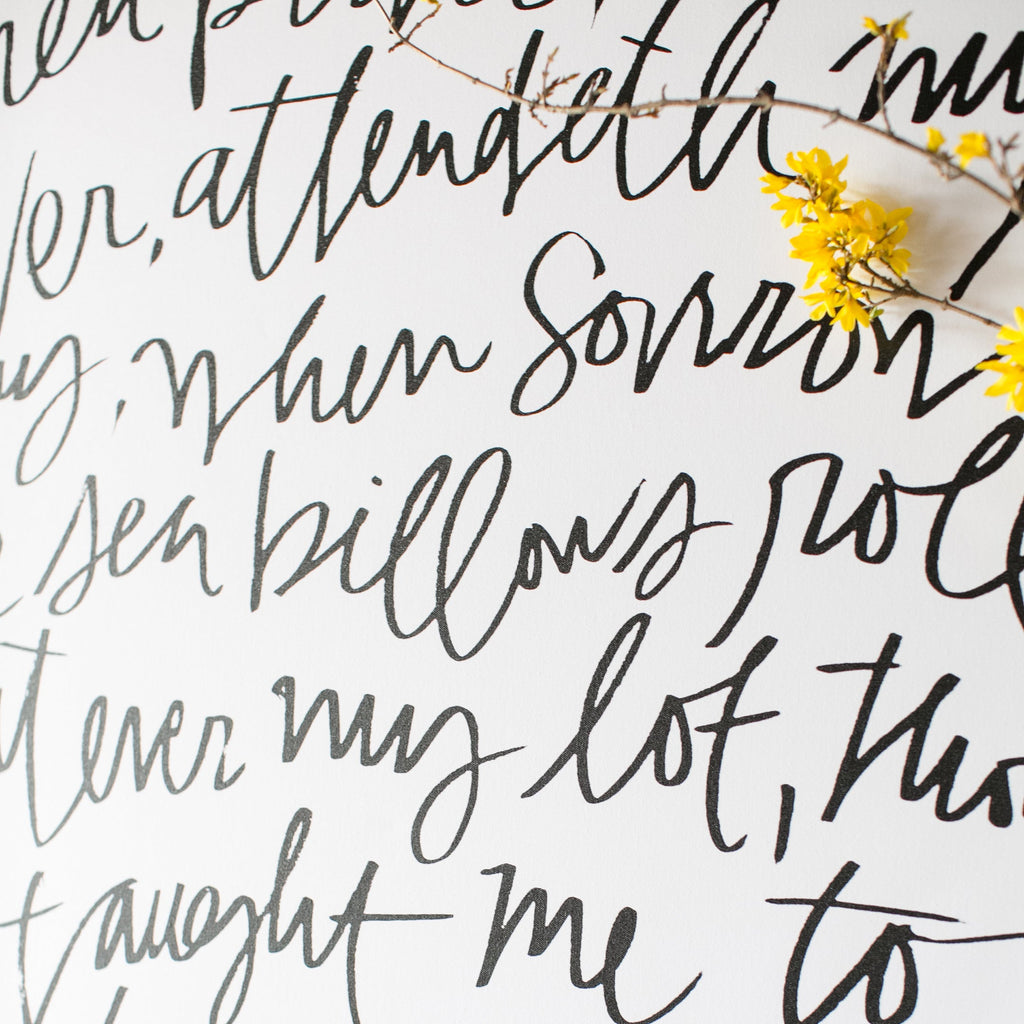 hen
ver, attendeth my
ay, when Sorrow
sea billows roll
at ever my lot, thou
taught me to